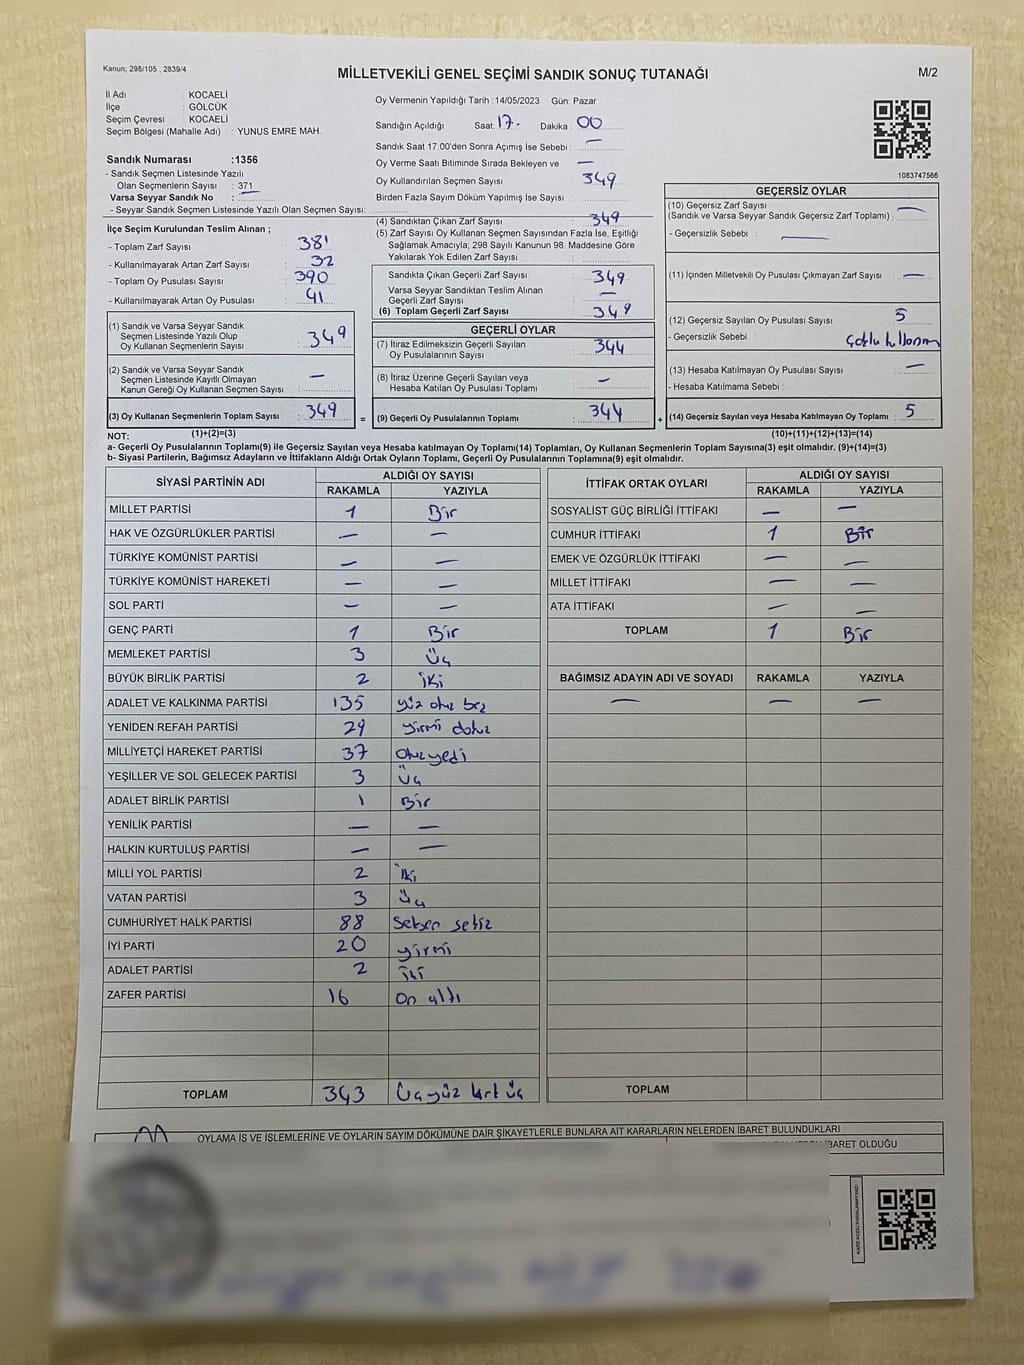 Kanun; 298/105 , 2839/4
MİLLETVEKİLİ GENEL SEÇİMİ SANDIK SONUÇ TUTANAĞI
M/2
İl Adı : KOCAELİ
İlçe : GÖLCÜK
Seçim Çevresi : KOCAELİ
Seçim Bölgesi (Mahalle Adı) : YUNUS EMRE MAH.
Sandık Numarası :1356
- Sandık Seçmen Listesinde Yazılı
Olan Seçmenlerin Sayısı : 371
Varsa Seyyar Sandık No :
- Seyyar Sandık Seçmen Listesinde Yazılı Olan Seçmen Sayısı:
Oy Vermenin Yapıldığı Tarih : 14/05/2023 Gün: Pazar
Sandığın Açıldığı Saat: 17. Dakika : 00
Sandık Saat 17:00'den Sonra Açımış İse Sebebi : —
Oy Verme Saati Bitiminde Sırada Bekleyen ve —
Oy Kullandırılan Seçmen Sayısı : 349
Birden Fazla Sayım Döküm Yapılmış İse Sayısı :
1083747566
İlçe Seçim Kurulundan Teslim Alınan ;
- Toplam Zarf Sayısı : 381
- Kullanılmayarak Artan Zarf Sayısı : 32
- Toplam Oy Pusulası Sayısı : 390
- Kullanılmayarak Artan Oy Pusulası : 41
(1) Sandık ve Varsa Seyyar Sandık
Seçmen Listesinde Yazılı Olup
Oy Kullanan Seçmenlerin Sayısı : 349
(2) Sandık ve Varsa Seyyar Sandık
Seçmen Listesinde Kayıtlı Olmayan
Kanun Gereği Oy Kullanan Seçmen Sayısı : —
(3) Oy Kullanan Seçmenlerin Toplam Sayısı : 349
(1)+(2)=(3)
(4) Sandıktan Çıkan Zarf Sayısı : 349
(5) Zarf Sayısı Oy Kullanan Seçmen Sayısından Fazla İse, Eşitliği
Sağlamak Amacıyla; 298 Sayılı Kanunun 98. Maddesine Göre
Yakılarak Yok Edilen Zarf Sayısı :
Sandıkta Çıkan Geçerli Zarf Sayısı : 349
Varsa Seyyar Sandıktan Teslim Alınan
Geçerli Zarf Sayısı : —
(6) Toplam Geçerli Zarf Sayısı : 349
GEÇERLİ OYLAR
(7) İtiraz Edilmeksizin Geçerli Sayılan
Oy Pusulalarının Sayısı : 344
(8) İtiraz Üzerine Geçerli Sayılan veya
Hesaba Katılan Oy Pusulası Toplamı : —
= (9) Geçerli Oy Pusulalarının Toplamı : 344
GEÇERSİZ OYLAR
(10) Geçersiz Zarf Sayısı
(Sandık ve Varsa Seyyar Sandık Geçersiz Zarf Toplamı) : —
- Geçersizlik Sebebi : —
(11) İçinden Milletvekili Oy Pusulası Çıkmayan Zarf Sayısı : —
(12) Geçersiz Sayılan Oy Pusulası Sayısı : 5
- Geçersizlik Sebebi : Çoklu kullanım
(13) Hesaba Katılmayan Oy Pusulası Sayısı : —
- Hesaba Katılmama Sebebi :
+ (14) Geçersiz Sayılan veya Hesaba Katılmayan Oy Toplamı : 5
(10)+(11)+(12)+(13)=(14)
NOT:
a- Geçerli Oy Pusulalarının Toplamı(9) ile Geçersiz Sayılan veya Hesaba katılmayan Oy Toplamı(14) Toplamları, Oy Kullanan Seçmenlerin Toplam Sayısına(3) eşit olmalıdır. (9)+(14)=(3)
b- Siyasi Partilerin, Bağımsız Adayların ve İttifakların Aldığı Ortak Oyların Toplamı, Geçerli Oy Pusulalarının Toplamına(9) eşit olmalıdır.
SİYASİ PARTİNİN ADI ALDIĞI OY SAYISI
RAKAMLA YAZIYLA
MİLLET PARTİSİ 1 Bir
HAK VE ÖZGÜRLÜKLER PARTİSİ — —
TÜRKİYE KOMÜNİST PARTİSİ — —
TÜRKİYE KOMÜNİST HAREKETİ — —
SOL PARTİ — —
GENÇ PARTİ 1 Bir
MEMLEKET PARTİSİ 3 Üç
BÜYÜK BİRLİK PARTİSİ 2 iki
ADALET VE KALKINMA PARTİSİ 135 yüz otuz beş
YENİDEN REFAH PARTİSİ 29 yirmi dokuz
MİLLİYETÇİ HAREKET PARTİSİ 37 Otuz yedi
YEŞİLLER VE SOL GELECEK PARTİSİ 3 Üç
ADALET BİRLİK PARTİSİ 1 Bir
YENİLİK PARTİSİ — —
HALKIN KURTULUŞ PARTİSİ — —
MİLLİ YOL PARTİSİ 2 iki
VATAN PARTİSİ 3 Üç
CUMHURİYET HALK PARTİSİ 88 Seksen sekiz
İYİ PARTİ 20 yirmi
ADALET PARTİSİ 2 iki
ZAFER PARTİSİ 16 On altı
TOPLAM 343 Üçyüz kırk üç
İTTİFAK ORTAK OYLARI ALDIĞI OY SAYISI
RAKAMLA YAZIYLA
SOSYALİST GÜÇ BİRLİĞİ İTTİFAKI — —
CUMHUR İTTİFAKI 1 Bir
EMEK VE ÖZGÜRLÜK İTTİFAKI — —
MİLLET İTTİFAKI — —
ATA İTTİFAKI — —
TOPLAM 1 Bir
BAĞIMSIZ ADAYIN ADI VE SOYADI RAKAMLA YAZIYLA
— — —
TOPLAM
OYLAMA İŞ VE İŞLEMLERİNE VE OYLARIN SAYIM DÖKÜMÜNE DAİR ŞİKAYETLERLE BUNLARA AİT KARARLARIN NELERDEN İBARET BULUNDUKLARI
İBARET OLDUĞU